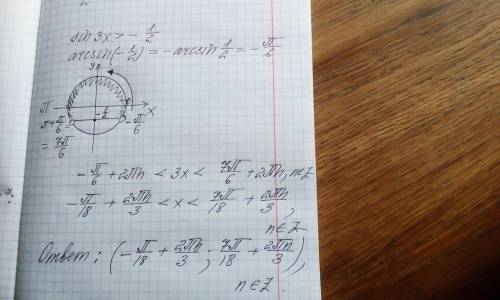 sin 3x > - 1/2
arcsin(-1/2) = -arcsin 1/2 = - π/6
y
π
x
-1/2
π + π/6 =
= 7π/6
-π/6
-π/6 + 2πn < 3x < 7π/6 + 2πn, n∈Z
-π/18 + 2πn/3 < x < 7π/18 + 2πn/3,
n∈Z
Ответ: (-π/18 + 2πn/3; 7π/18 + 2πn/3),
n∈Z.